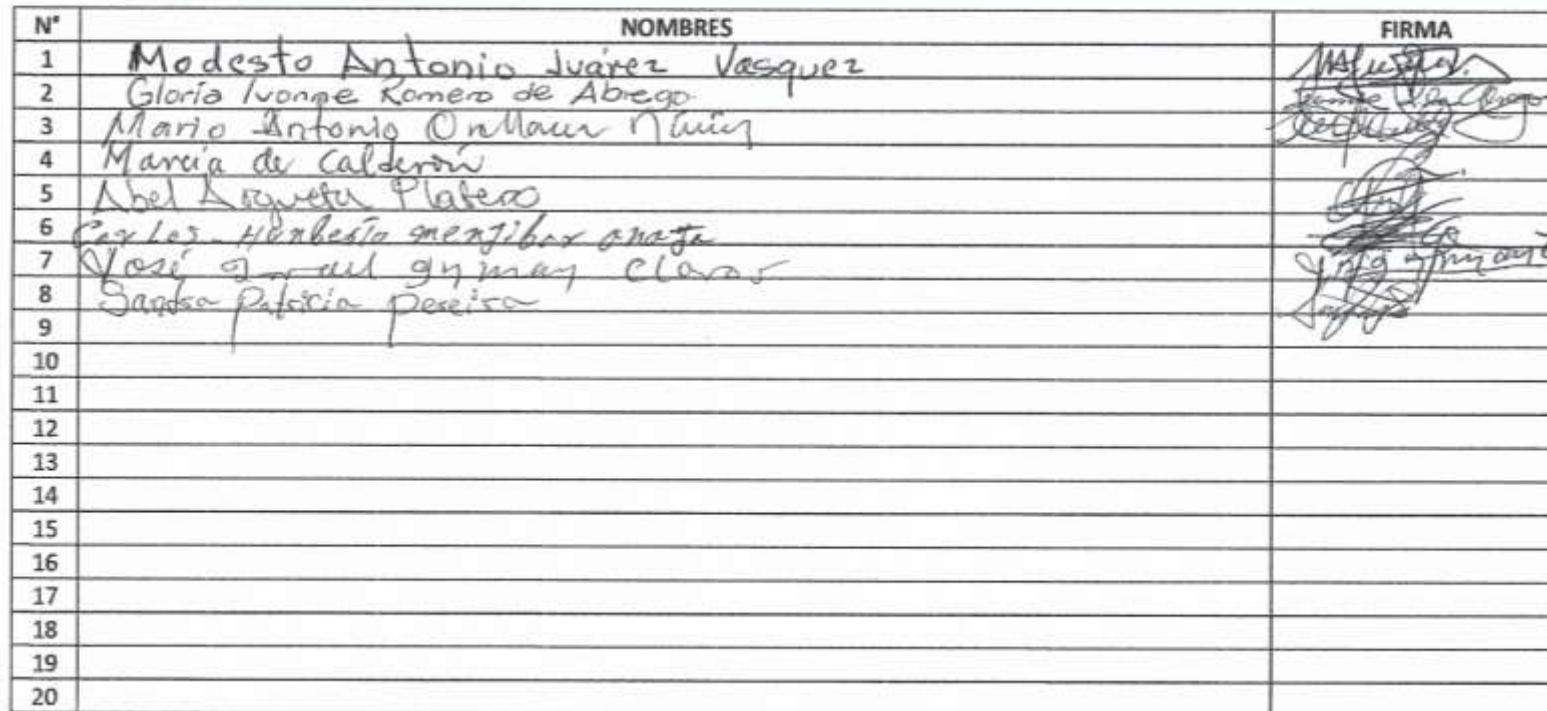 N° NOMBRES FIRMA
1 Modesto Antonio Juárez Vasquez
2 Gloria Ivonne Romero de Abrego
3 Mario Antonio Orellana
4 Marcia de Calderón
5 Abel Argueta Platero
6 Carlos Humberto menjibar anaya
7 José guzman Claros
8 Sandra Patricia pereira
9
10
11
12
13
14
15
16
17
18
19
20